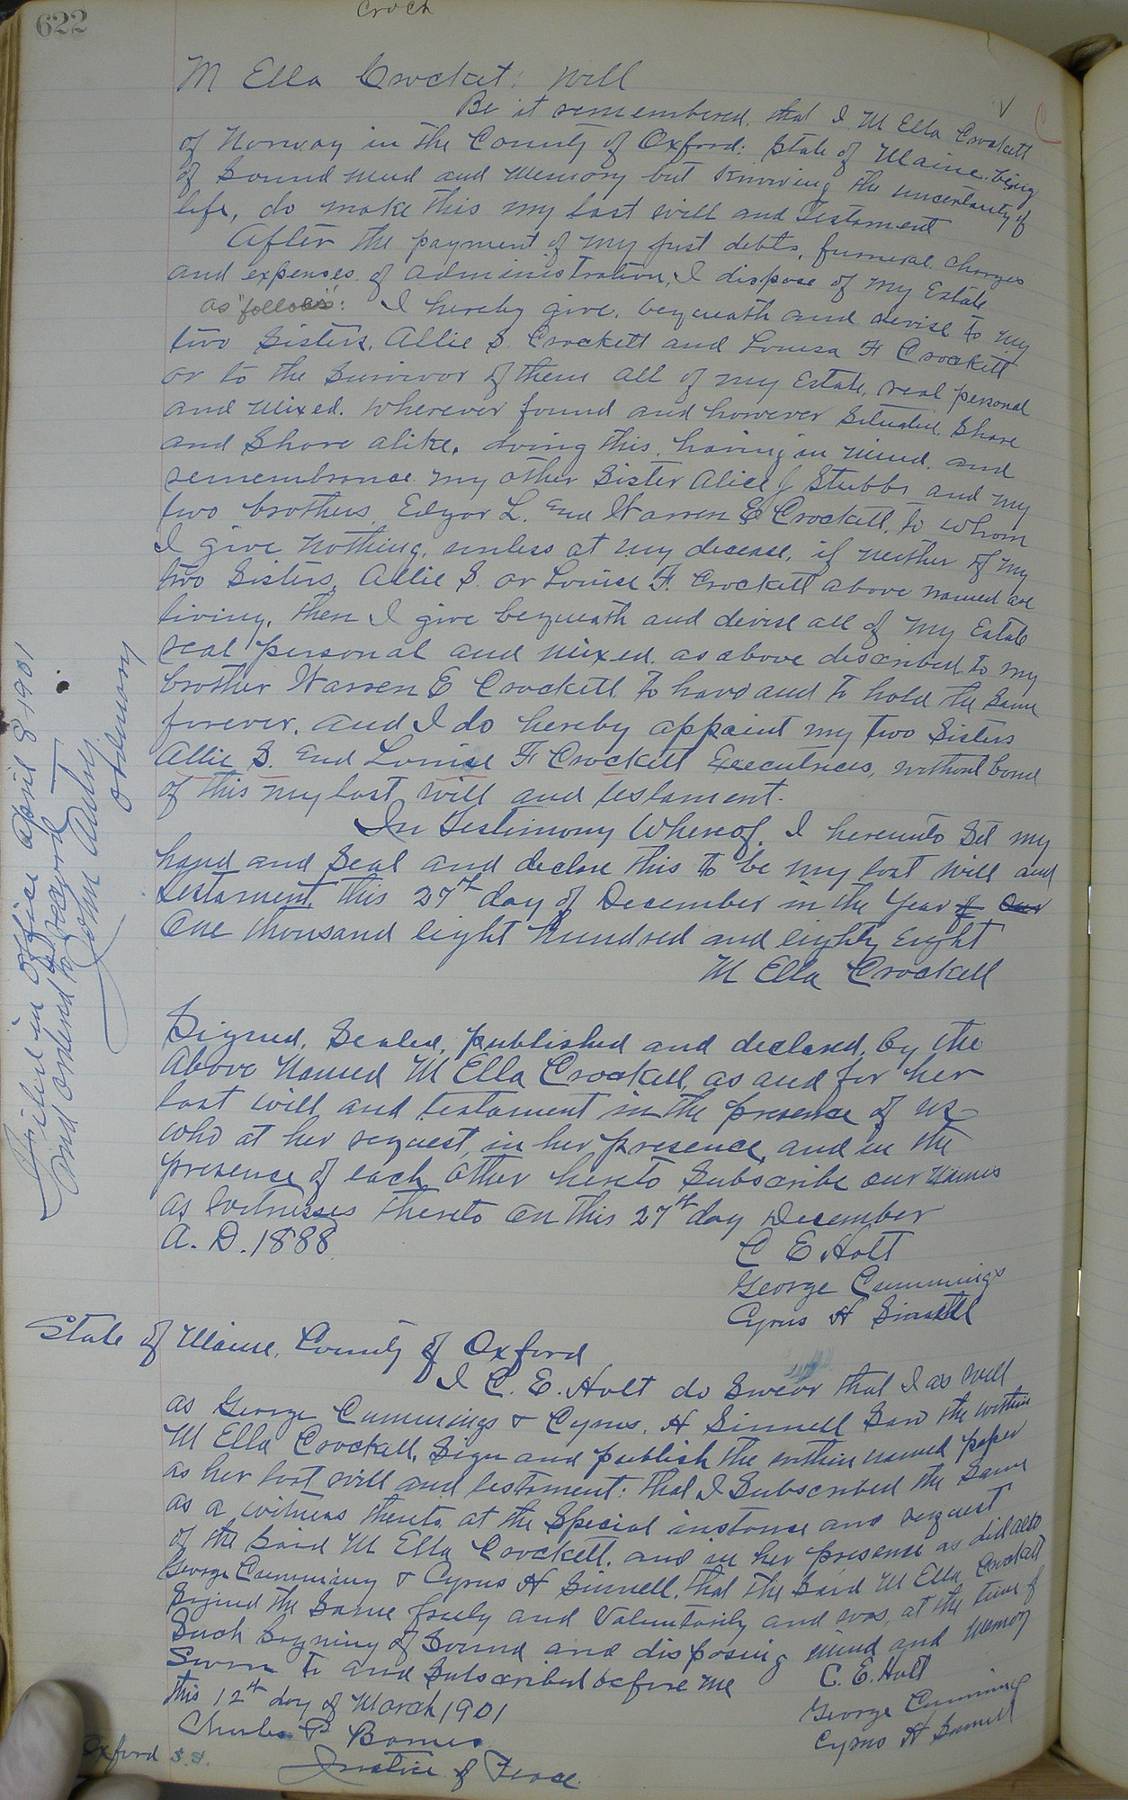 622
Croch
M Ella Crocket: Will
Be it remembered. that I M Ella Crockett
of Norway in the County of Oxford: State of Maine. being
of Sound mind and memory but Knowing the uncertainty of
life, do make this my last will and Testament
After the payment of my just debts, funeral charges
and expenses of administration, I dispose of my Estate
as follows: I hereby give, bequeath and devise to my
two Sisters, Allie S. Crockett and Louisa F Crockett
or to the Survivor of them all of my Estate, real personal
and mixed. wherever found and however Situated Share
and Share alike. doing this, having in mind. and
remembrance my other Sister Alice J Stubbs and my
two brothers, Edgar L. and Warren E Crockett. to whom
I give nothing, unless at my decease, if neither of my
two Sisters, Allie S. or Louise F. Crockett above named are
living, then I give bequeath and devise all of my Estate
real personal and mixed. as above discribed to my
brother Warren E Crockett to have and to hold the Same
forever. and I do hereby appoint my two Sisters
Allie S. and Louise F Crockett Executrices, without bond
of this my last will and testament.
In Testimony Whereof. I hereunto Set my
hand and Seal and declare this to be my last will and
testament, this 27th day of December in the Year of our
One thousand eight hundred and eighty eight
M Ella Crockett
Signed, Sealed, published and declared, by the
above named M Ella Crockett, as and for her
last will and testament in the presence of us
who at her request, in her presence, and in the
presence of each other hereto Subscribe our names
as Witnesses thereto on this 27th day December
A. D. 1888
C E Holt
George Cummings
Cyrus H
State of Maine, County of Oxford
I C. E. Holt do Swear that I as well
as George Cummings & Cyrus. H Sinnell Saw the within
M Ella Crockett, Sign and publish the within named paper
as her last will and testament: that I Subscribed the Same
as a witness thereto at the Special instance and request
of the Said M Ella Crockett. and in her presence as did also
George Cumming & Cyrus H Sinnell. that the Said M Ella Crockett
Signed the Same freely and Voluntarily and was, at the time of
Such Signing of Sound and disposing mind and memory
Sworn to and Subscribed before me
C. E. Holt
this 12th day of March 1901
George Cumming
Charles P Barnes
Cyrus H
Justice of Peace
Oxford S.S.
Filed in office April 8 1901
and Ordered to Record
John